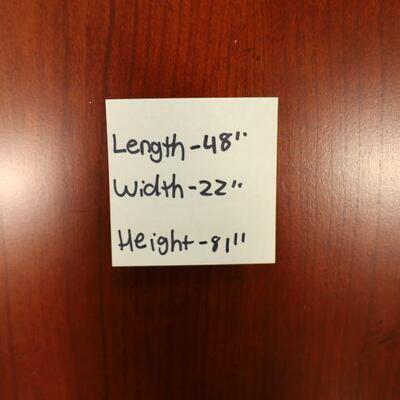 Length-48"
Width-22"
Height-81"